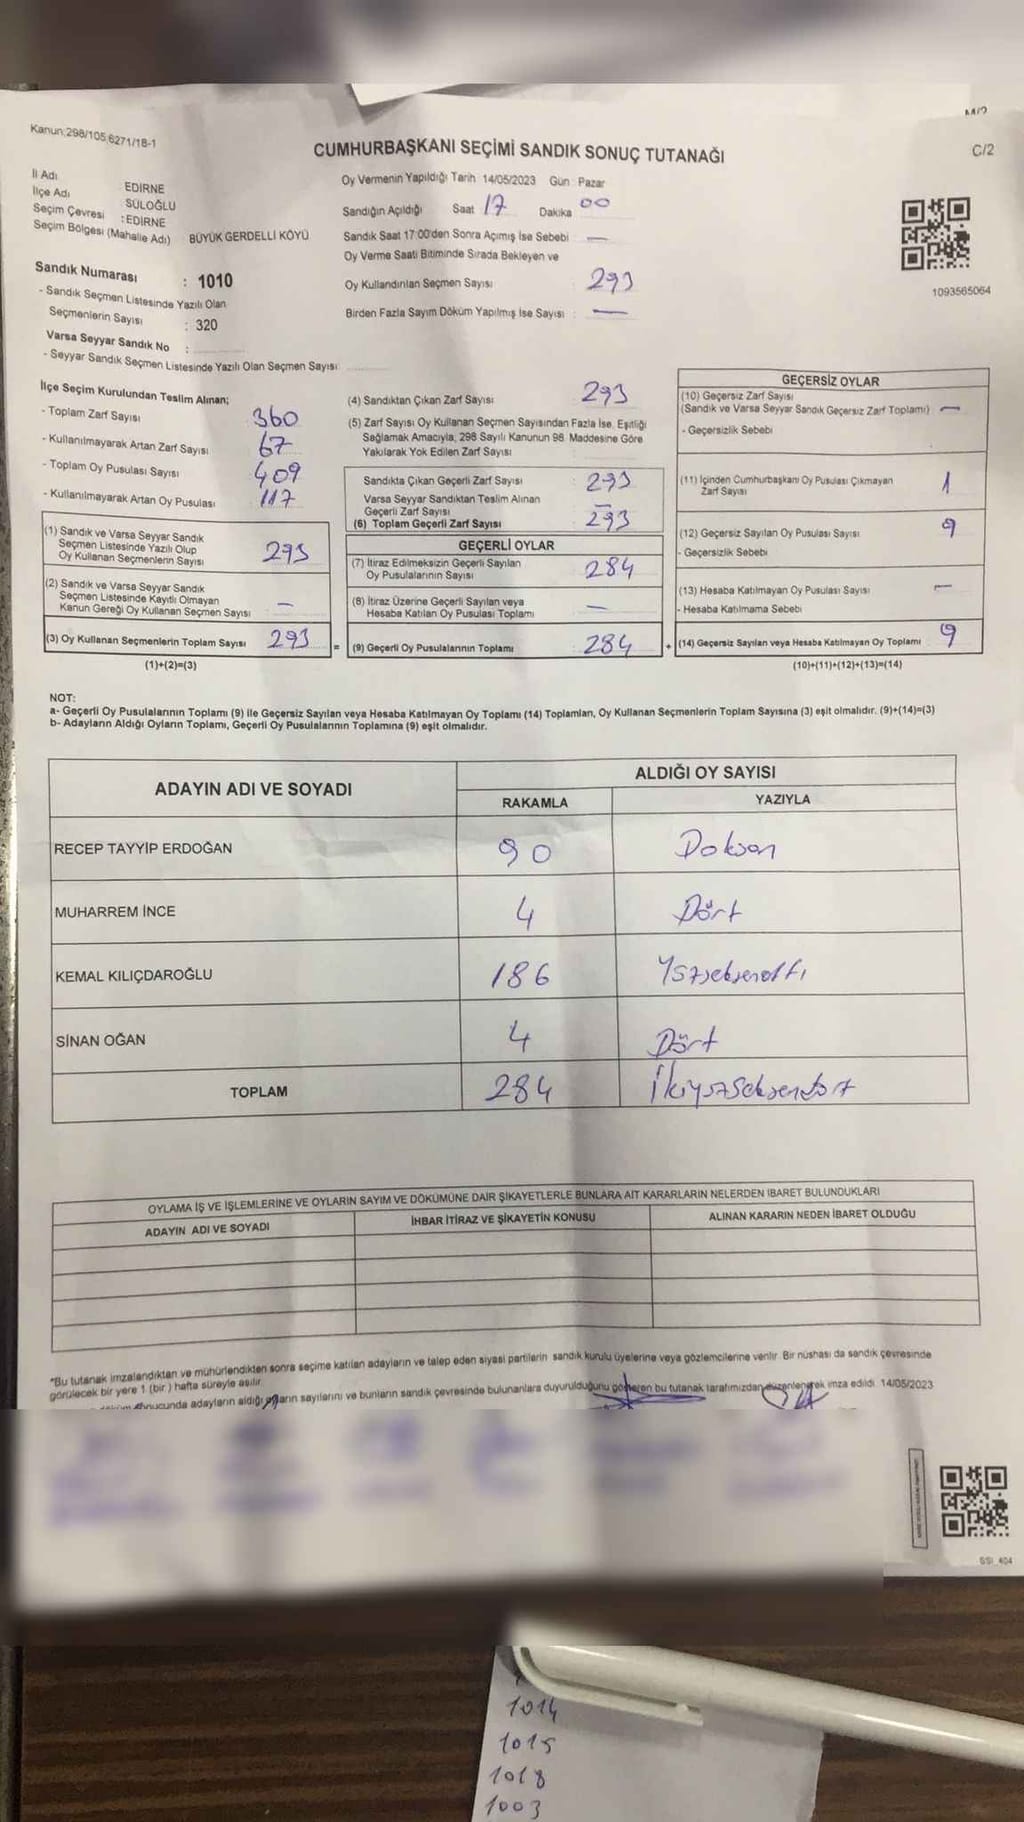 Kanun:298/105,6271/18-1
C/2
CUMHURBAŞKANI SEÇİMİ SANDIK SONUÇ TUTANAĞI
İl Adı EDİRNE
İlçe Adı SÜLOĞLU
Seçim Çevresi :EDİRNE
Seçim Bölgesi (Mahalle Adı) BÜYÜK GERDELLİ KÖYÜ
Sandık Numarası : 1010
- Sandık Seçmen Listesinde Yazılı Olan
Seçmenlerin Sayısı : 320
Varsa Seyyar Sandık No :
- Seyyar Sandık Seçmen Listesinde Yazılı Olan Seçmen Sayısı:
Oy Vermenin Yapıldığı Tarih 14/05/2023 Gün : Pazar
Sandığın Açıldığı Saat 17 Dakika 00
Sandık Saat 17:00'den Sonra Açımış İse Sebebi —
Oy Verme Saati Bitiminde Sırada Bekleyen ve
Oy Kullandırılan Seçmen Sayısı : 293
Birden Fazla Sayım Döküm Yapılmış İse Sayısı : —
1093565064
İlçe Seçim Kurulundan Teslim Alınan;
- Toplam Zarf Sayısı 360
- Kullanılmayarak Artan Zarf Sayısı 67
- Toplam Oy Pusulası Sayısı 409
- Kullanılmayarak Artan Oy Pusulası 117
(1) Sandık ve Varsa Seyyar Sandık
Seçmen Listesinde Yazılı Olup
Oy Kullanan Seçmenlerin Sayısı 293
(2) Sandık ve Varsa Seyyar Sandık
Seçmen Listesinde Kayıtlı Olmayan
Kanun Gereği Oy Kullanan Seçmen Sayısı —
(3) Oy Kullanan Seçmenlerin Toplam Sayısı 293 =
(1)+(2)=(3)
(4) Sandıktan Çıkan Zarf Sayısı 293
(5) Zarf Sayısı Oy Kullanan Seçmen Sayısından Fazla İse, Eşitliği
Sağlamak Amacıyla; 298 Sayılı Kanunun 98. Maddesine Göre
Yakılarak Yok Edilen Zarf Sayısı :
Sandıkta Çıkan Geçerli Zarf Sayısı 293
Varsa Seyyar Sandıktan Teslim Alınan
Geçerli Zarf Sayısı —
(6) Toplam Geçerli Zarf Sayısı 293
GEÇERLİ OYLAR
(7) İtiraz Edilmeksizin Geçerli Sayılan
Oy Pusulalarının Sayısı 284
(8) İtiraz Üzerine Geçerli Sayılan veya
Hesaba Katılan Oy Pusulası Toplamı —
(9) Geçerli Oy Pusulalarının Toplamı 284 +
GEÇERSİZ OYLAR
(10) Geçersiz Zarf Sayısı
(Sandık ve Varsa Seyyar Sandık Geçersiz Zarf Toplamı) —
- Geçersizlik Sebebi
(11) İçinden Cumhurbaşkanı Oy Pusulası Çıkmayan
Zarf Sayısı 1
(12) Geçersiz Sayılan Oy Pusulası Sayısı 9
- Geçersizlik Sebebi
(13) Hesaba Katılmayan Oy Pusulası Sayısı —
- Hesaba Katılmama Sebebi
(14) Geçersiz Sayılan veya Hesaba Katılmayan Oy Toplamı 9
(10)+(11)+(12)+(13)=(14)
NOT:
a- Geçerli Oy Pusulalarının Toplamı (9) ile Geçersiz Sayılan veya Hesaba Katılmayan Oy Toplamı (14) Toplamları, Oy Kullanan Seçmenlerin Toplam Sayısına (3) eşit olmalıdır. (9)+(14)=(3)
b- Adayların Aldığı Oyların Toplamı, Geçerli Oy Pusulalarının Toplamına (9) eşit olmalıdır.
ADAYIN ADI VE SOYADI ALDIĞI OY SAYISI
RAKAMLA YAZIYLA
RECEP TAYYİP ERDOĞAN 90 Doksan
MUHARREM İNCE 4 Dört
KEMAL KILIÇDAROĞLU 186 Yüzseksenaltı
SİNAN OĞAN 4 Dört
TOPLAM 284 İkiyüzseksendört
OYLAMA İŞ VE İŞLEMLERİNE VE OYLARIN SAYIM VE DÖKÜMÜNE DAİR ŞİKAYETLERLE BUNLARA AİT KARARLARIN NELERDEN İBARET BULUNDUKLARI
ADAYIN ADI VE SOYADI İHBAR İTİRAZ VE ŞİKAYETİN KONUSU ALINAN KARARIN NEDEN İBARET OLDUĞU
*Bu tutanak imzalandıktan ve mühürlendikten sonra seçime katılan adayların ve talep eden siyasi partilerin sandık kurulu üyelerine veya gözlemcilerine verilir. Bir nüshası da sandık çevresinde
görülecek bir yere 1 (bir ) hafta süreyle asılır.
sonucunda adayların aldığı oyların sayılarını ve bunların sandık çevresinde bulunanlara duyurulduğunu gösteren bu tutanak tarafımızdan düzenlenerek imza edildi. 14/05/2023
SSI_404
1014
1015
1018
1003